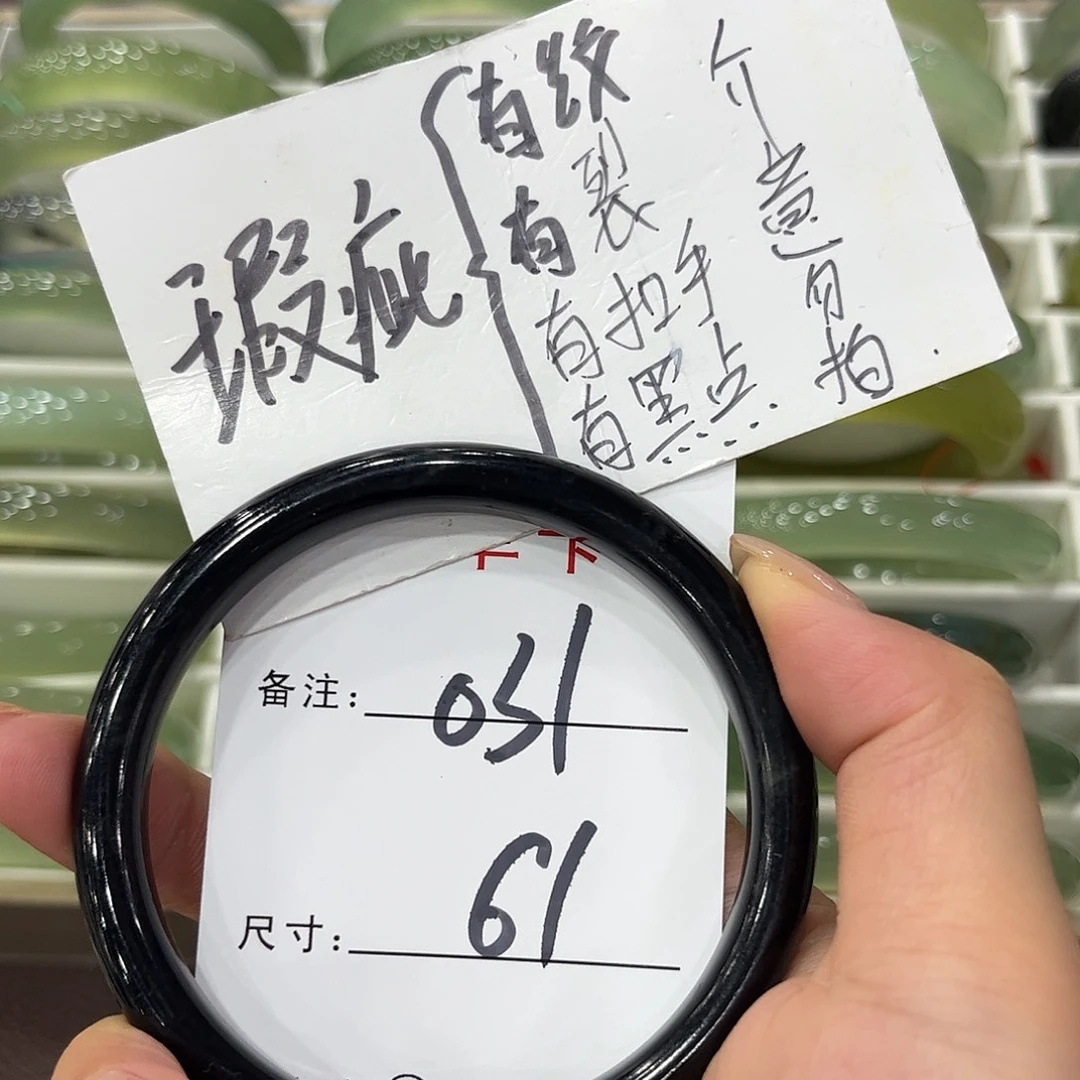 瑕疵
有纹
有裂
有扣手
有黑点.
介意勿拍.
备注: 031
尺寸: 61